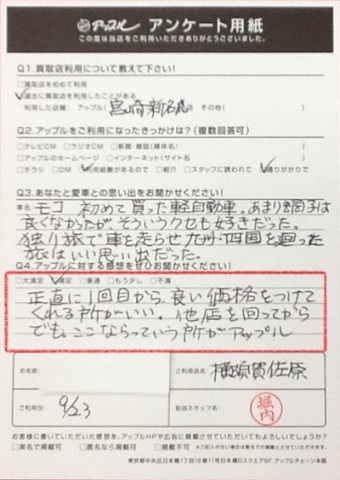 アップル アンケート用紙
この度は当店をご利用いただきありがとうございました。
Q1.買取店利用について教えて下さい!
□買取店を初めて利用
□過去に買取店を利用したことがある
利用した店舗 アップル( 宮崎新名爪 店 その他( )
Q2.アップルをご利用になったきっかけは?(複数回答可)
□テレビCM □ラジオCM □新聞・雑誌(媒体名/ )
□アップルのホームページ □インターネット(サイト名 )
□チラシ □DM □利用経験があるので □紹介 □スタッフに誘われて □通りがかりで
Q3.あなたと愛車との思い出をお聞かせください!
車名 モコ 初めて買った軽自動車。あまり調子は
良くなかったが、そういうクセも好きだった。
独り旅で車を走らせ九州・四国を廻った
旅はいい思い出だった。
Q4.アップルに対する感想をぜひお聞かせください!
□大満足 □満足 □普通 □もう少し □不満
正直に1回目から、良い価格をつけて
くれる所がいい。他店を回ってから
でも、ここならっていう所がアップル
お名前
ご利用店名 横須賀佐原
ご利用日 9/23
担当スタッフ名 堀内
お客様に書いていただいた感想を、アップルHPや広告に掲載させていただいてもよろしいでしょうか?
□実名で掲載可 □匿名なら掲載可 □不可
東京中央区日本橋1丁目16番11号日本橋ロスクエア8F アップルチェーン本部